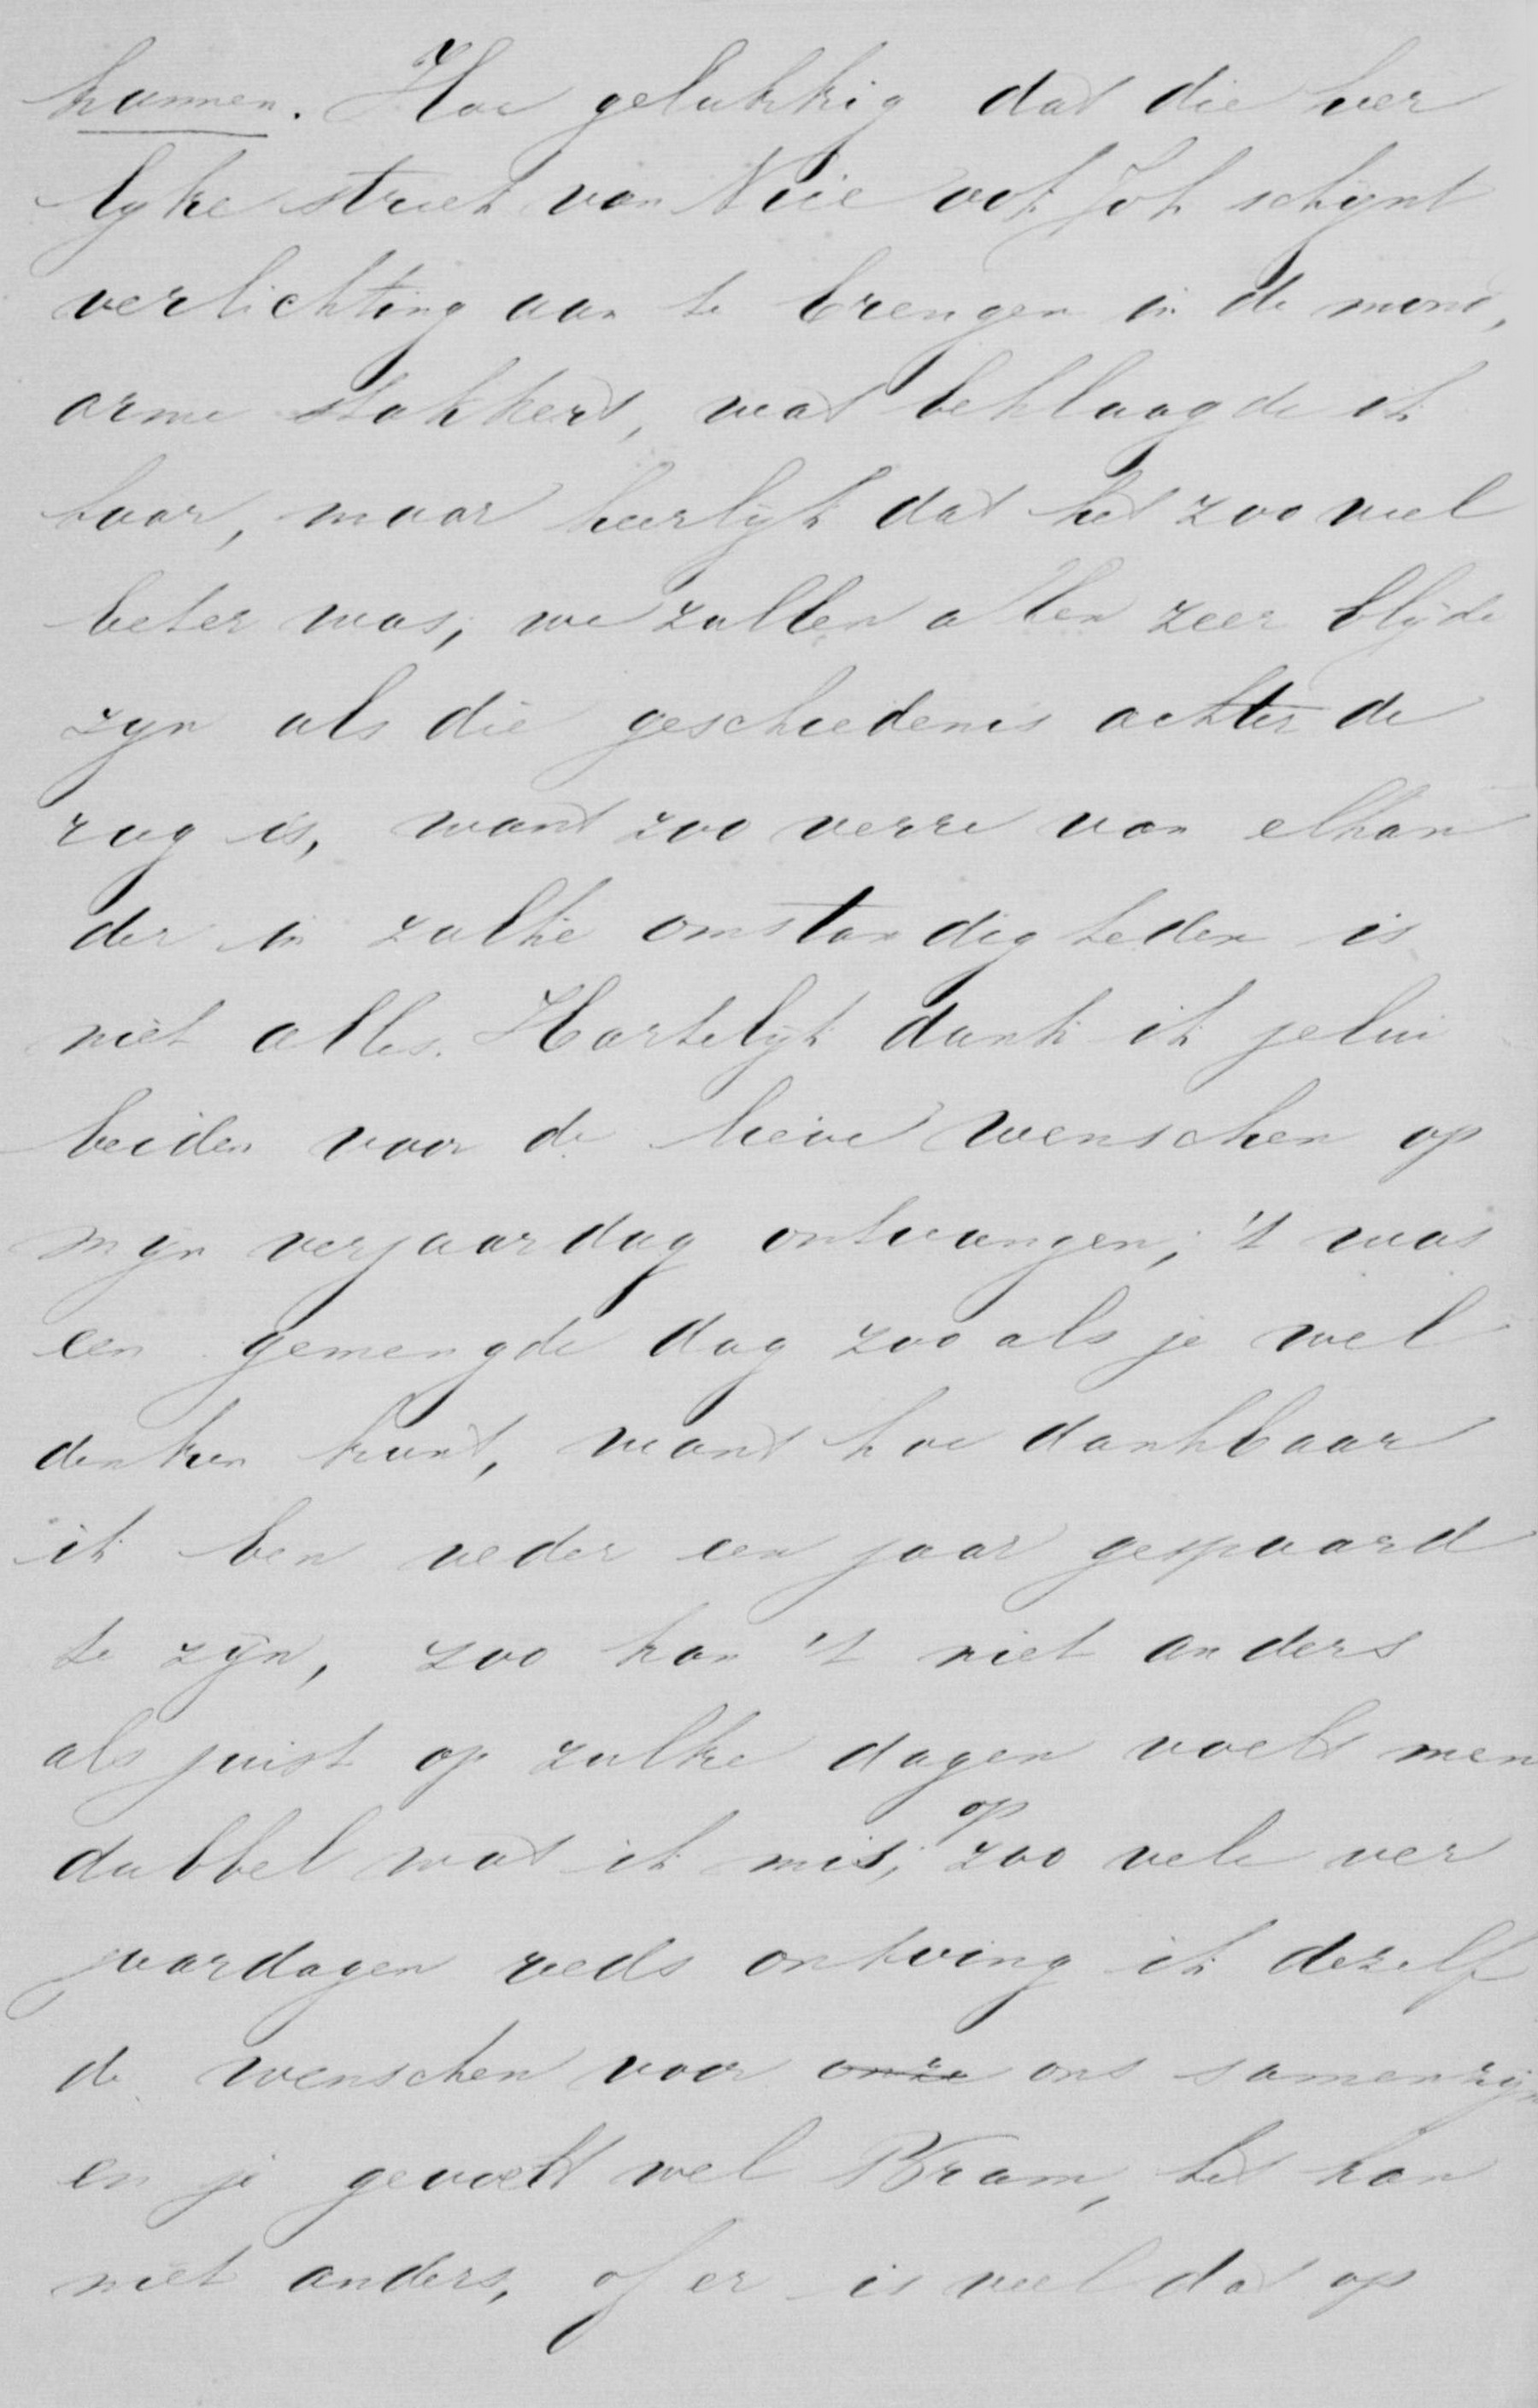 kunnen. Hoe gelukkig dat die heer
lyke streek van Nice ook Joh schynt
verlichting aan te brengen in de mond,
arme stakkerd, wat beklaagde ik
haar, maar heerlijk dat het zoo veel
beter was, we zullen allen zeer blijde
zyn als die geschiedenis achter de
rug is, want zoo verre van elkan
der in zulke omstandigheden is
niet alles. Hartelijk dank ik jelui
beiden voor de lieve wenschen op
mijn verjaardag ontvangen; 't was
een gemengde dag zooals je wel
denken kunt, want hoe dankbaar
ik ben weder een jaar gespaard
te zijn, zoo kan 't niet anders
als juist op zulke dagen voelt men
dubbel wat ik mis; op zoo vele ver
jaardagen reeds ontving ik dezelf
de wenschen voor onze ons samenzijn
en je gevoelt wel Bram, het kan
niet anders, of er is veel dat op